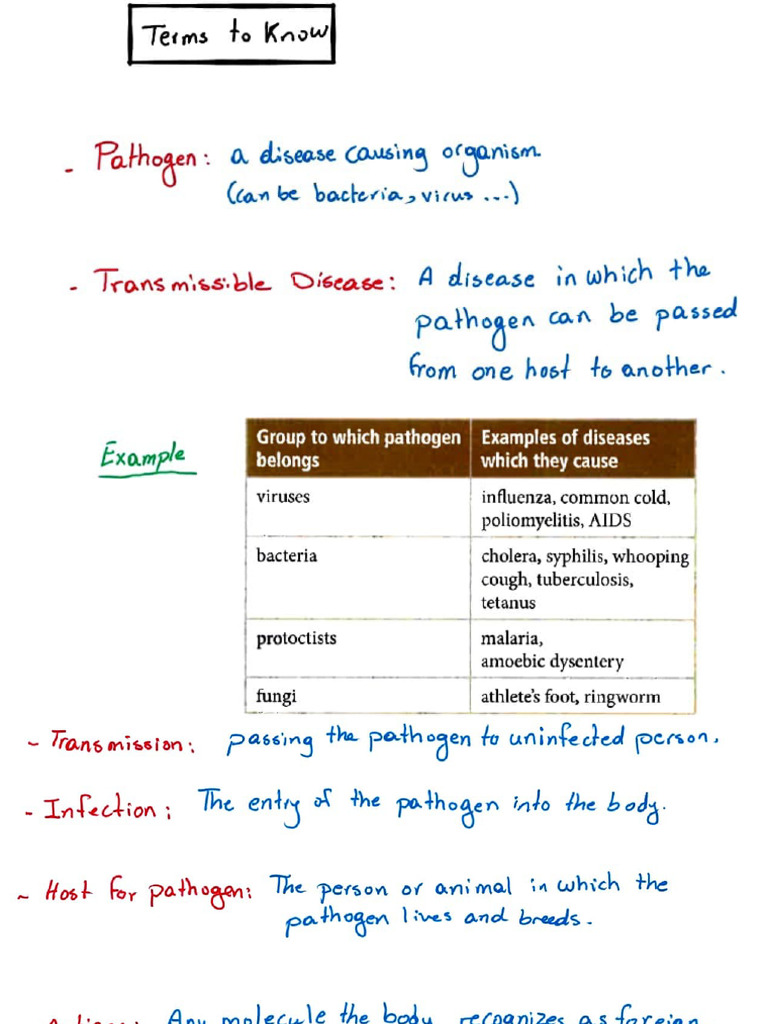 Terms to Know
- Pathogen: a disease causing organism
(can be bacteria, virus ...)
- Transmissible Disease: A disease in which the
pathogen can be passed
from one host to another.
Example
Group to which pathogen belongs
Examples of diseases which they cause
viruses
influenza, common cold,
poliomyelitis, AIDS
bacteria
cholera, syphilis, whooping
cough, tuberculosis,
tetanus
protoctists
malaria,
amoebic dysentery
fungi
athlete's foot, ringworm
- Transmission: passing the pathogen to uninfected person.
- Infection: The entry of the pathogen into the body.
- Host for pathogen: The person or animal in which the
pathogen lives and breeds.
Any molecule the body recognizes as foreign